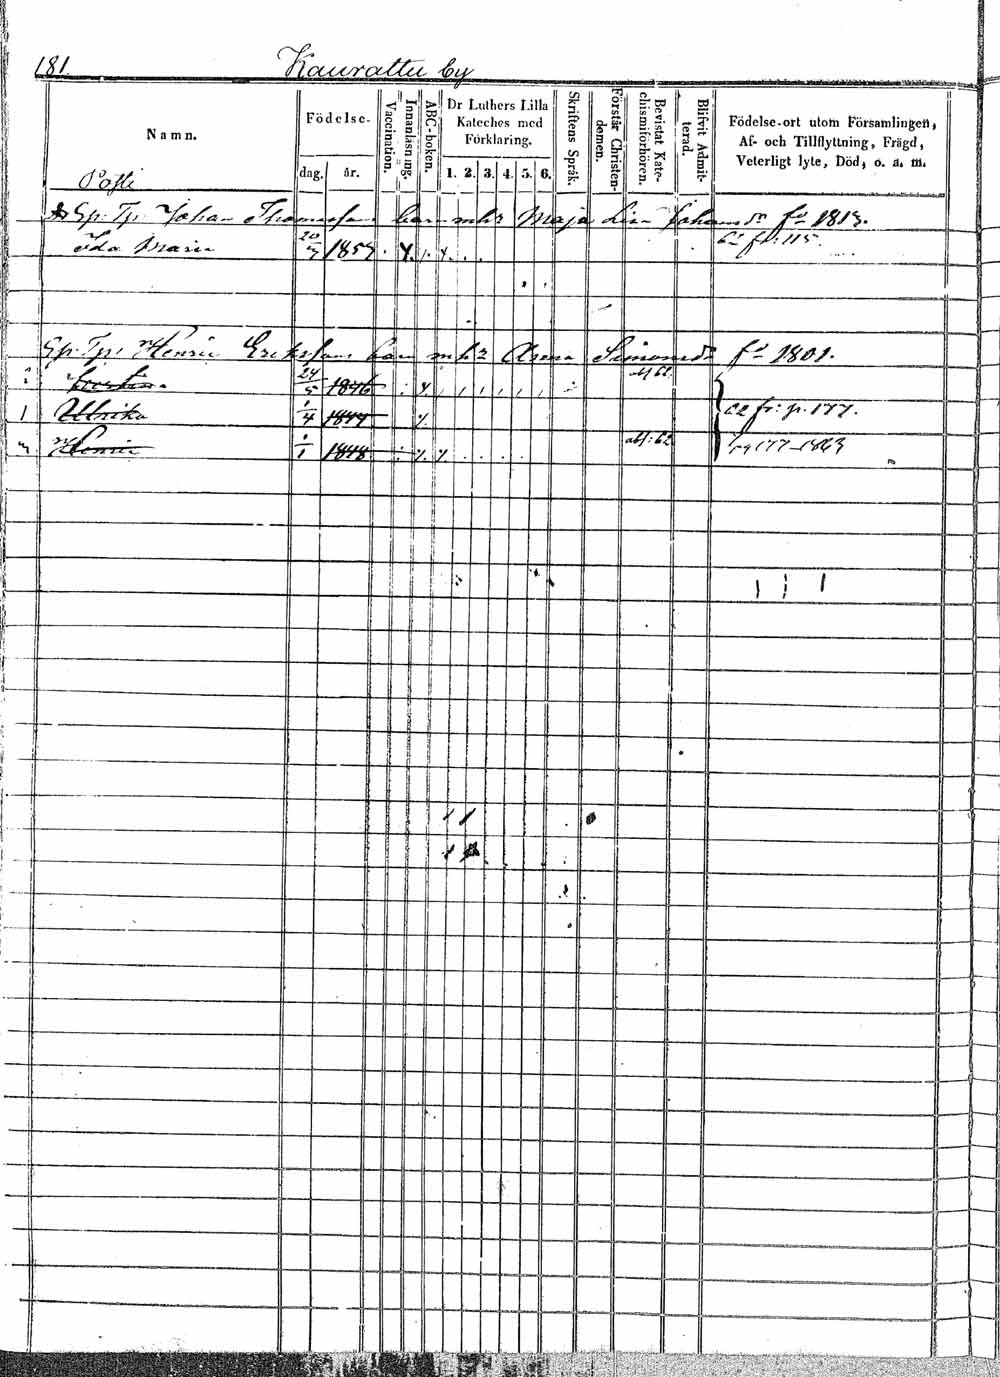 181.
Kaurattu by
Namn.
Födelse-
dag. år.
Vaccination.
Innanläsning.
ABC-boken.
Dr Luthers Lilla
Kateches med
Förklaring.
1. 2. 3. 4. 5. 6.
Skriftens Språk.
Förstår Christen-
domen.
Bevistat Kate-
chismiförhören.
Blifvit Admit-
terad.
Födelse-ort utom Församlingen,
Af- och Tillflyttning, Frägd,
Veterligt lyte, Död, o. a. m.
Johan Thomasson barn mhr Maja Lisa Johansdr fd 1813.
Ida Maria 20/3 1857.
fl: 115
Henric Eriksson barn mhr Anna Simonsdr fd 1801.
2 24/5 1846 abs 62
1 Ulrika 1/4 1844 fr: p. 177.
3 Henric 1/1 1848 abs: 62 pg 177 - 1863